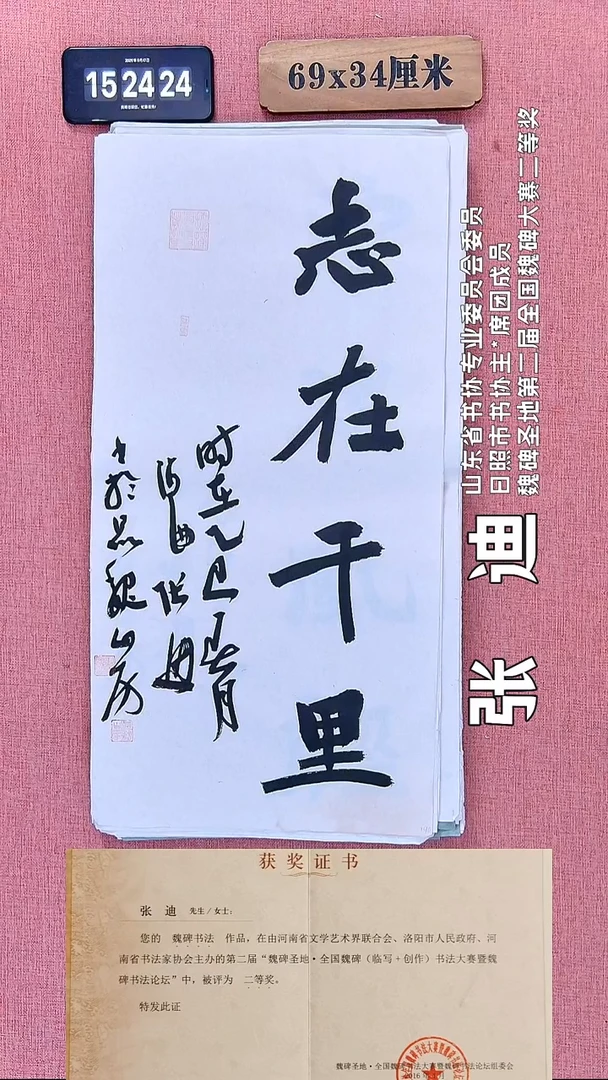 15 24 24
69x34厘米
志在千里
时在乙巳春月
张迪
书于品魏山房
山东省书协专业委员会委员
日照市书协主*席团成员
魏碑圣地第二届全国魏碑大赛二等奖
张 迪
获奖证书
张 迪 先生/女士：
您的 魏碑书法 作品，在由河南省文学艺术界联合会、洛阳市人民政府、河
南省书法家协会主办的第二届“魏碑圣地·全国魏碑（临写+创作）书法大赛暨魏
碑书法论坛”中，被评为 二等奖。
特发此证
魏碑圣地·全国魏碑书法大赛暨魏碑书法论坛组委会
2016